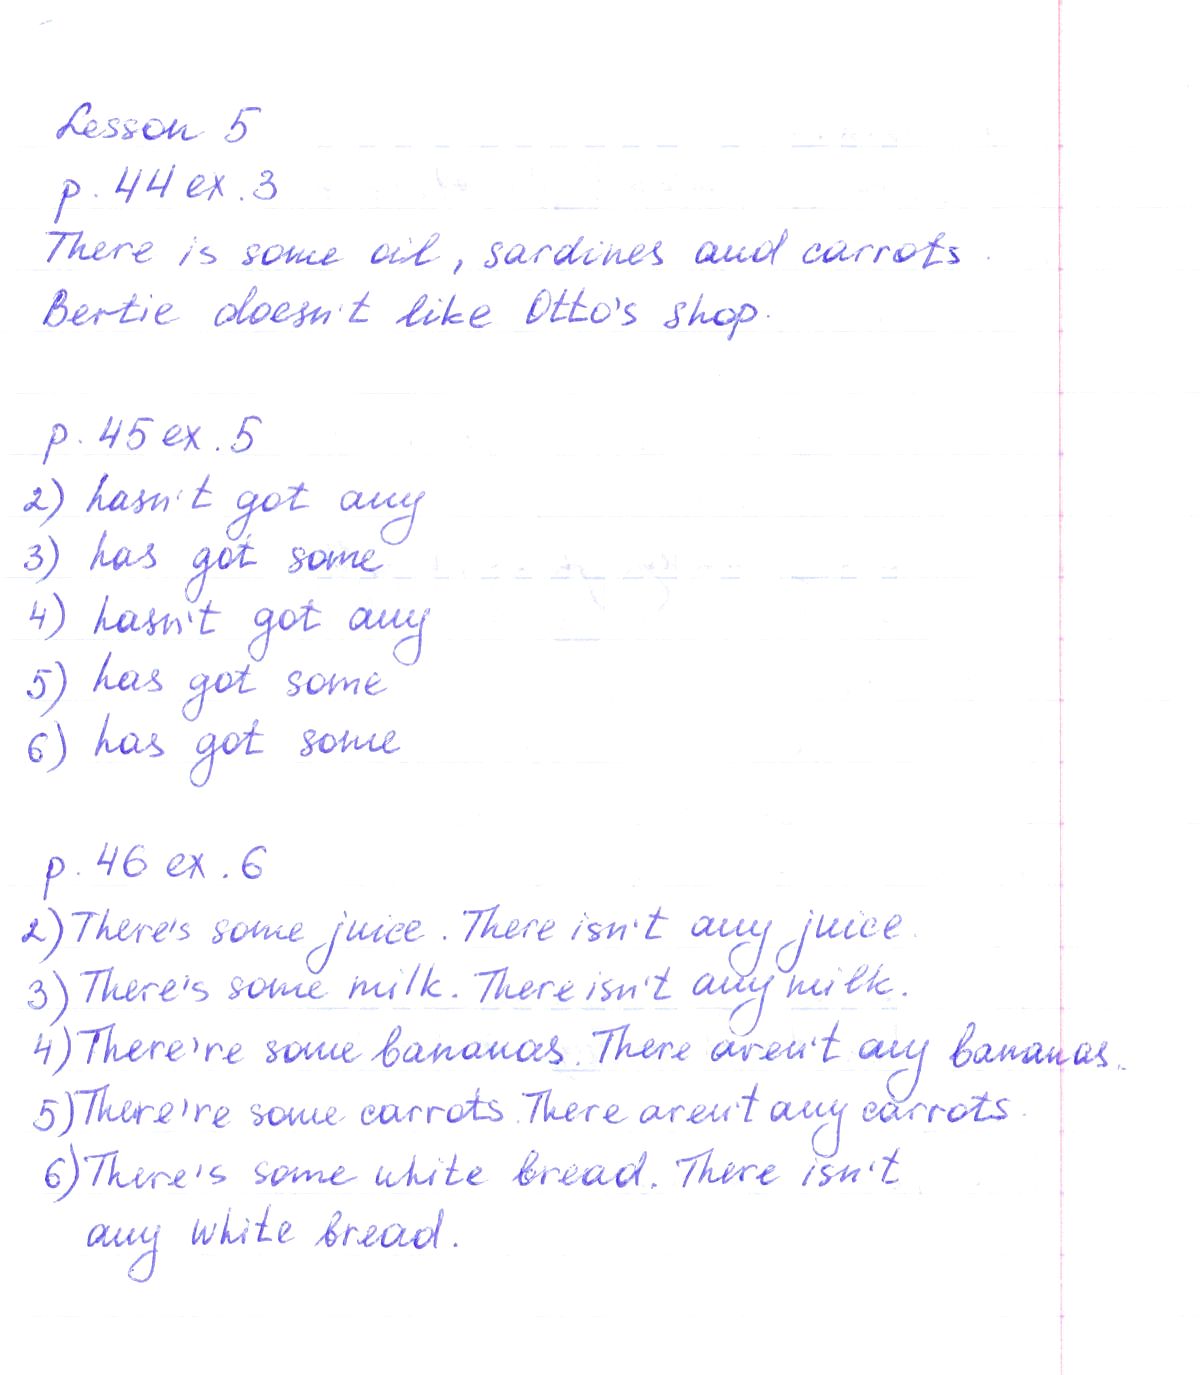 Lesson 5
p. 44 ex. 3
There is some oil, sardines and carrots.
Bertie doesn't like Otto's shop.
p. 45 ex. 5
2) hasn't got any
3) has got some
4) hasn't got any
5) has got some
6) has got some
p. 46 ex. 6
2) There's some juice. There isn't any juice.
3) There's some milk. There isn't any milk.
4) There're some bananas. There aren't any bananas.
5) There're some carrots. There aren't any carrots.
6) There's some white bread. There isn't
any white bread.